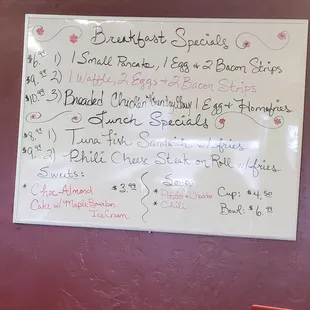 Breakfast Specials
$6.99 1) 1 Small Pancake, 1 Egg + 2 Bacon Strips
$9.99 2) 1 Waffle, 2 Eggs + 2 Bacon Strips
$10.99 3) Breaded Chicken 1 Egg + Homefries
Lunch Specials
$8.99 1) Tuna Fish Sandwich w/fries
$9.99 2) Phili Cheese Steak on Roll w/fries
Sweets:
* Choc-Almond $3.99
Cake w/ Maple Bourbon
Ice Cream
Soup:
* Potato + Cheddar
* Chili
Cup: $4.50
Bowl: $6.99